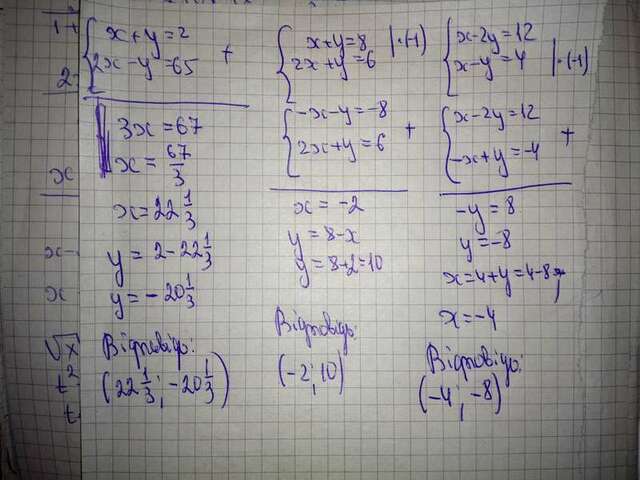 { x + y = 2
{ 2x - y = 65 +
3x = 67
x = 67/3
x = 22 1/3
y = 2 - 22 1/3
y = -20 1/3
Відповідь:
(22 1/3; -20 1/3)
{ x + y = 8 | ·(-1)
{ 2x + y = 6
{ -x - y = -8
{ 2x + y = 6 +
x = -2
y = 8 - x
y = 8 + 2 = 10
Відповідь:
(-2; 10)
{ x - 2y = 12
{ x - y = 4 | ·(-1)
{ x - 2y = 12
{ -x + y = -4 +
-y = 8
y = -8
x = 4 + y = 4 - 8 =
x = -4
Відповідь:
(-4; -8)